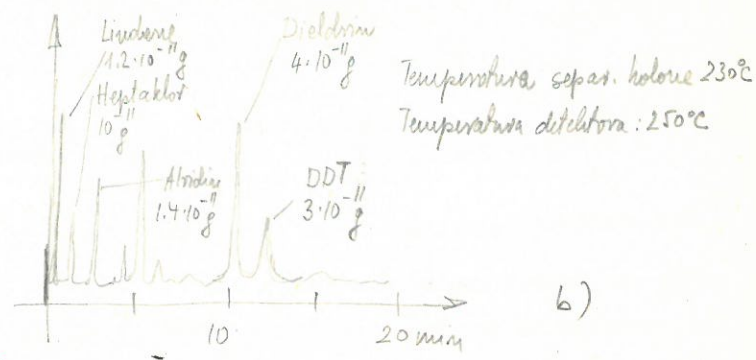 Lindane
1.2·10⁻¹¹g
Heptaklor
10⁻¹¹g
Aldrin
1.4·10⁻¹¹g
Dieldrin
4·10⁻¹¹g
DDT
3·10⁻¹¹g
Temperatura separ. kolone 230°C
Temperatura detektora: 250°C
10
20 min
b)